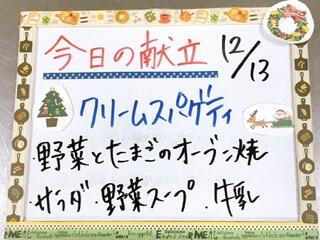 今日の献立 12/13
クリームスパゲティ
・野菜とたまごのオーブン焼
・サラダ・野菜スープ・牛乳